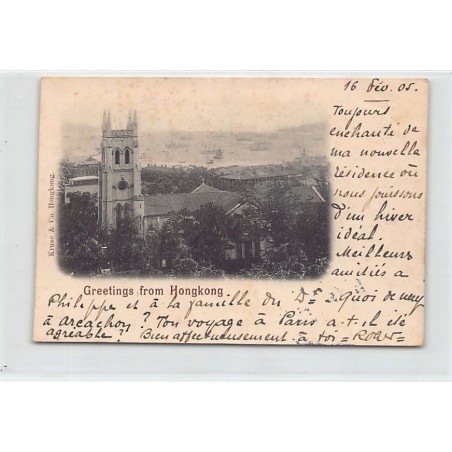 16 Fév. 05.
Toujours
enchanté de
ma nouvelle
résidence où
nous jouissons
d'un hiver
idéal.
Meilleurs
amitiés à
Kruse & Co. Hongkong.
Greetings from Hongkong
Philippe et à la famille du Dr. Quoi de neuf
à Arcachon? Ton voyage à Paris a-t-il été
agréable? Bien affectueusement à toi =